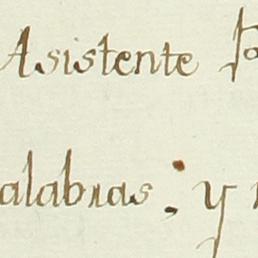 Asistente
alabras; y